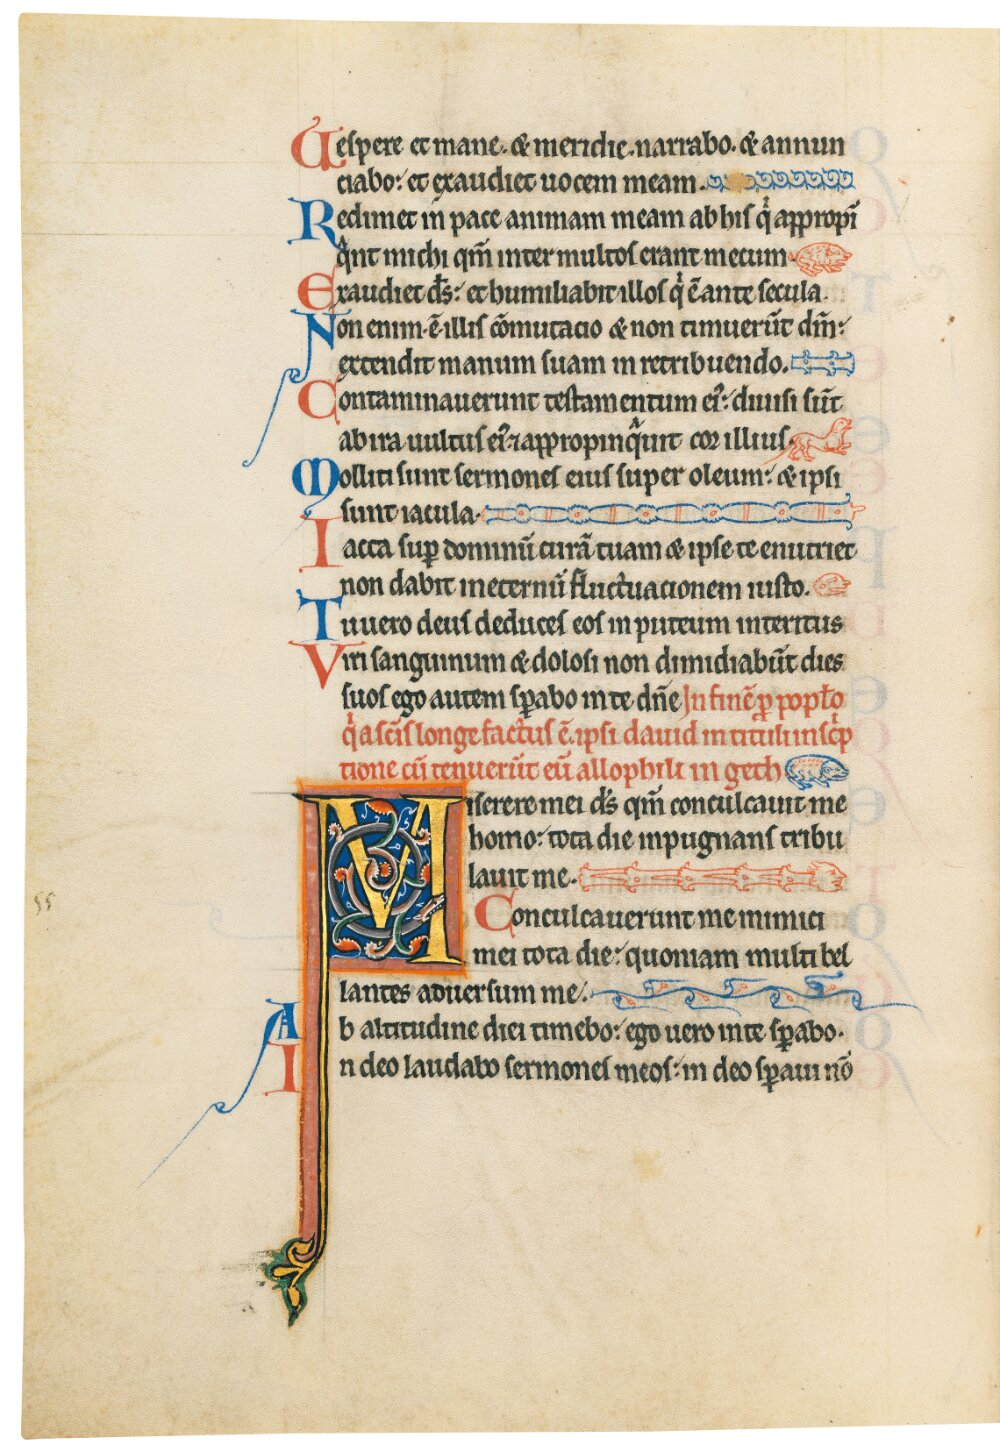 Vespere et mane. & meridie. narrabo. & annun
ciabo: et exaudiet uocem meam.
Redimet in pace animam meam ab his q̇ appropī
q̇nt michi qm̄ inter multos erant mecum.
Exaudiet d̄s: et humiliabit illos q̇ ē ante secula.
Non enim ē illis cōmutacio & non timuerūt dm̄:
extendit manum suam in retribuendo.
Contaminauerunt testamentum ei': diuisi sūt
ab ira uultus ei' ⁊ appropinq̇uit cor illius.
Molliti sunt sermones eius super oleum: & ipsi
sunt iacula.
Iacta sup̱ dominū curā tuam & ipse te enutriet
non dabit in eternū fluctuacionem iusto.
Tu uero deus deduces eos in puteum interitus
Viri sanguinum & dolosi non dimidiabūt dies
suos ego autem sp̱abo in te dn̄e In finē p̱ pop̱lo
q̇ a sc̄is longe factus ē. ipsi dauid in tituli insc̱p
tione cū tenuerūt eū allophili in geth
Miserere mei d̄s qm̄ conculcauit me
homo: tota die inpugnans tribu
lauit me.
Conculcauerunt me inimici
mei tota die: quoniam multi bel
lantes aduersum me.
Ab altitudine diei timebo: ego uero in te sp̱abo.
In deo laudabo sermones meos: in deo sp̱aui nō
55